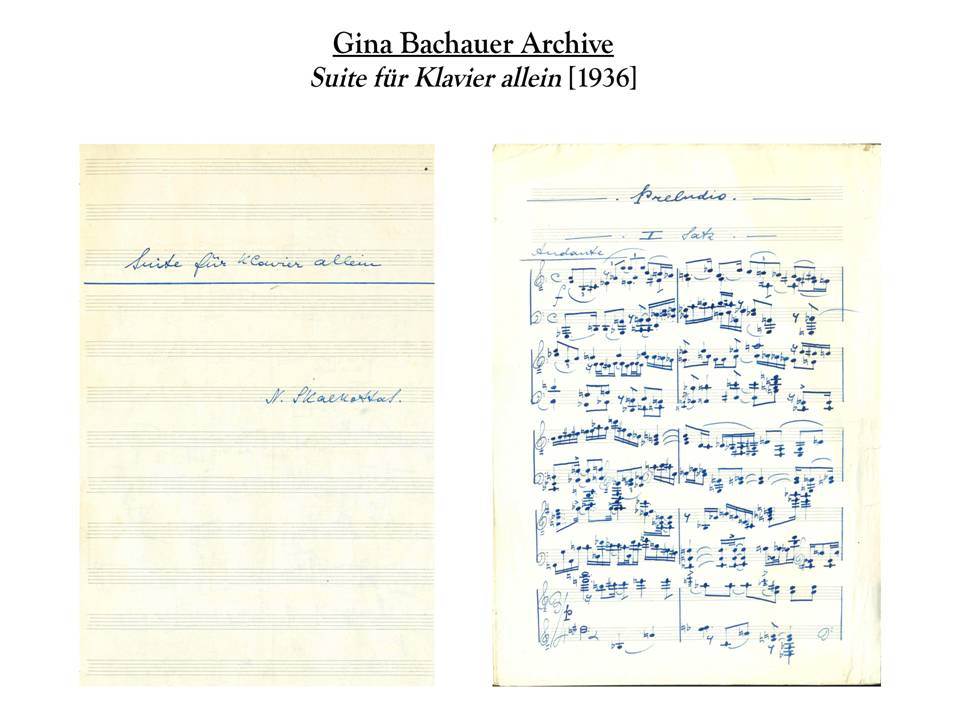 Gina Bachauer Archive
Suite für Klavier allein [1936]
Suite für Klavier allein
N. Skalkottas.
. Preludio .
. I Satz .
Andante
f
p